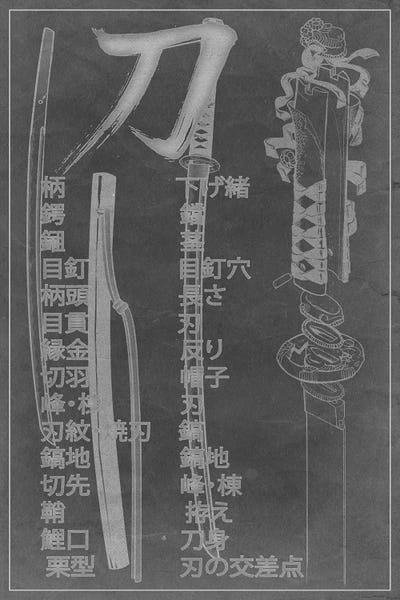 刀
柄
鍔
鎺
目釘
柄頭
目貫
縁金
切羽
峰・棟
刃紋・焼刃
鎬地
切先
鞘
鯉口
栗型
下げ緒
茎
目釘穴
長さ
刃
反り
帽子
刃
鎬
鎬地
峰・棟
拵え
刀身
刃の交差点